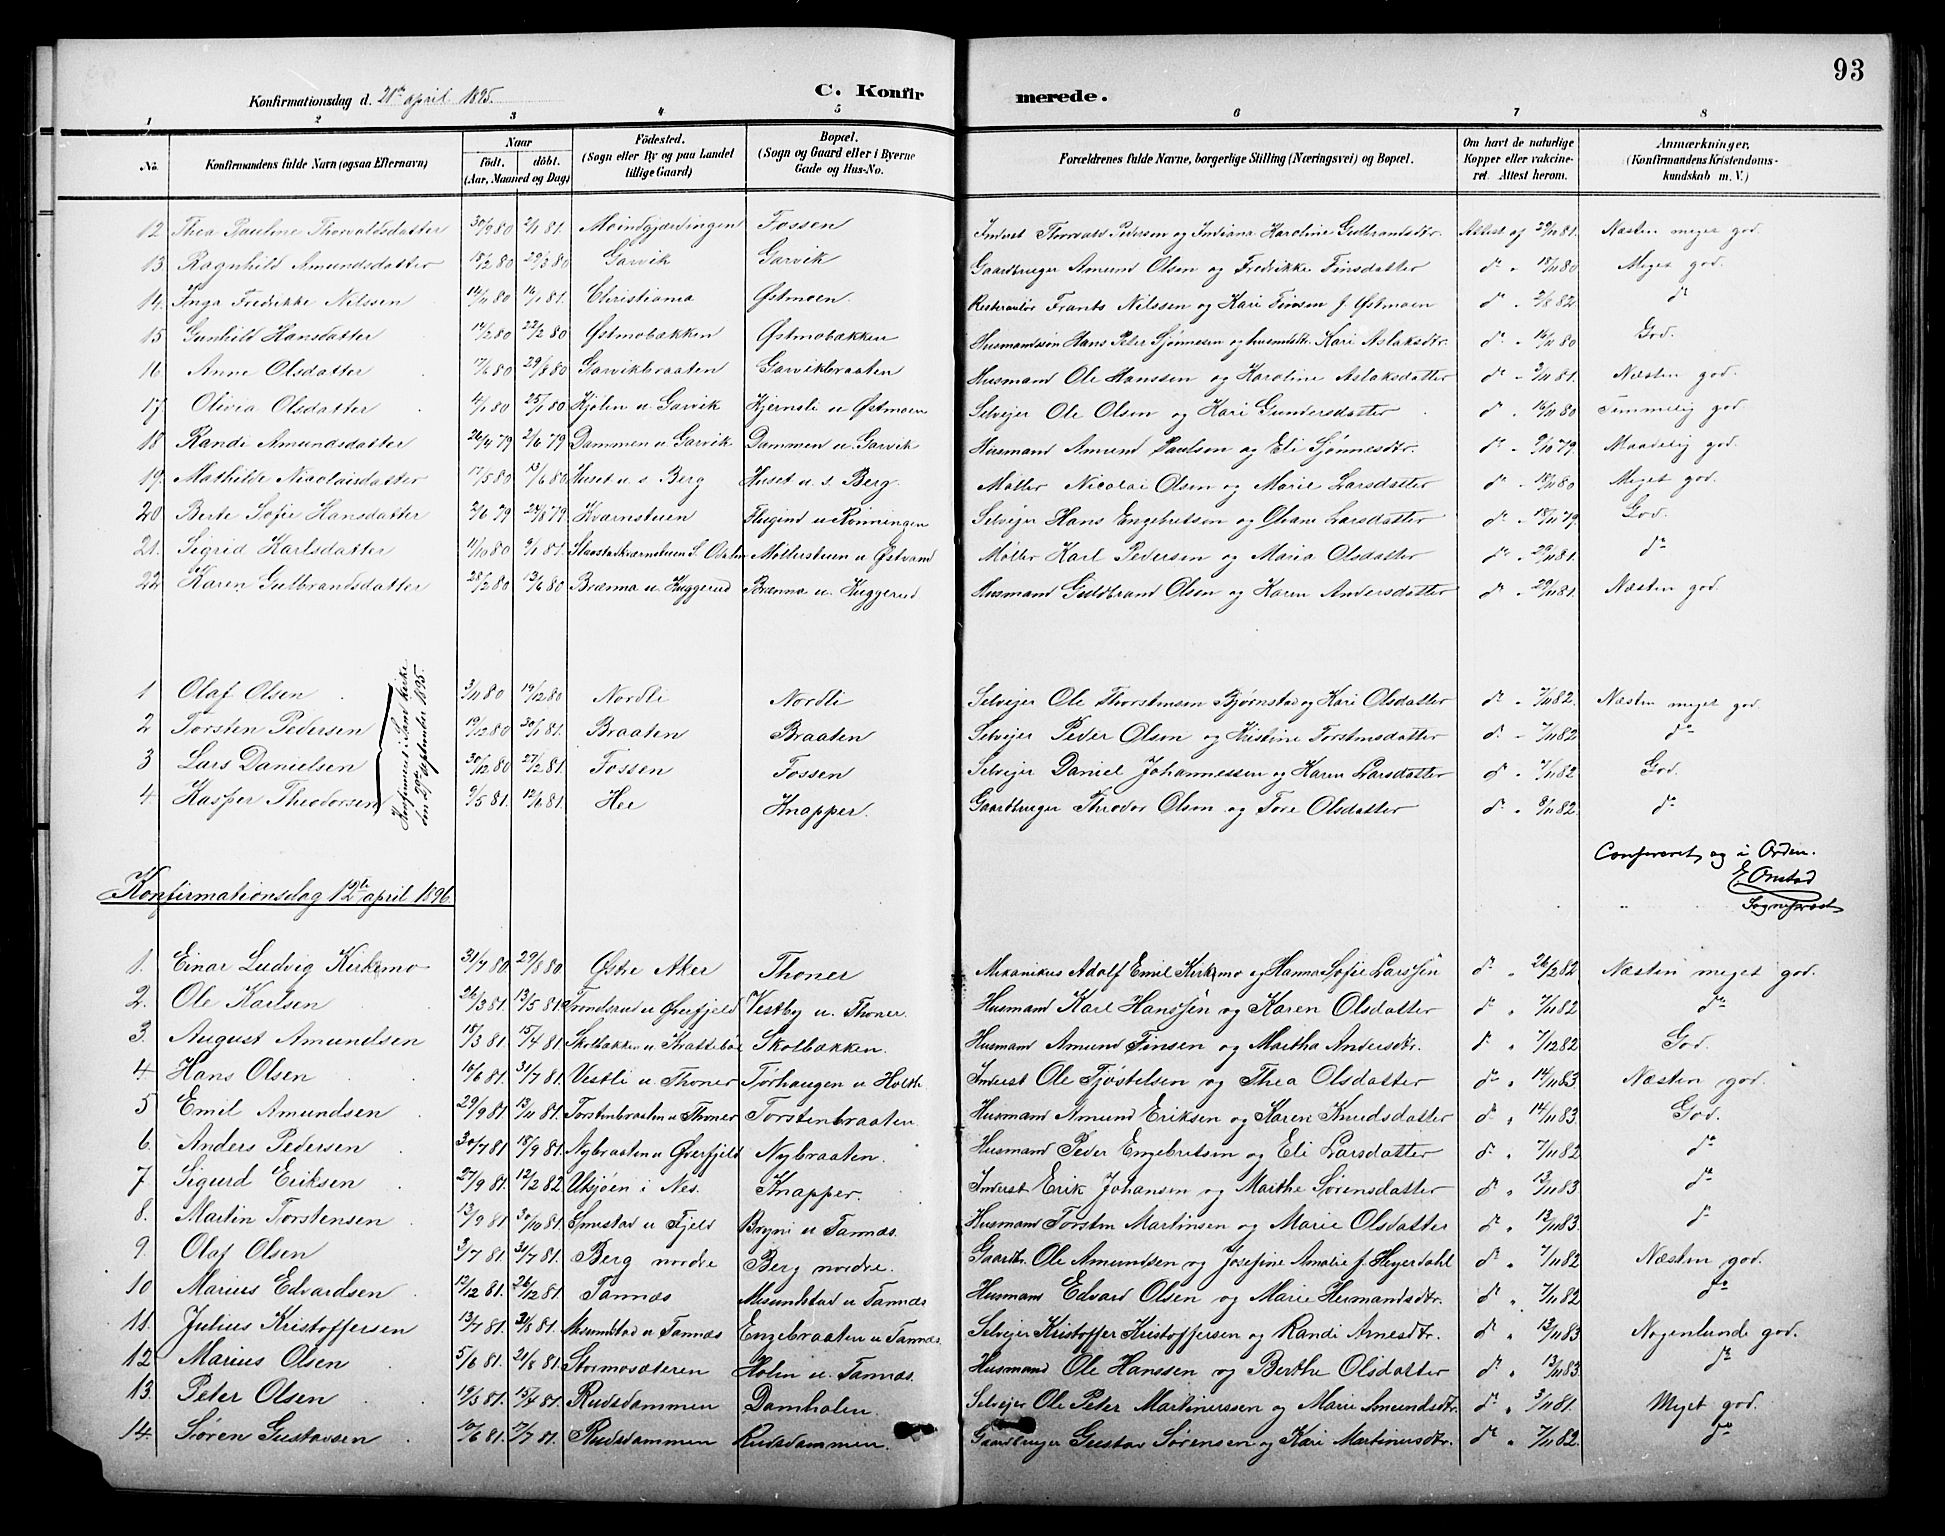 93
Konfirmationsdag d. 21de april 1895.
C. Konfirmerede.
1 2 3 4 5 6 7 8
No. Konfirmandens fulde Navn (ogsaa Efternavn) Naar født. døbt. (Aar, Maaned og Dag) Fødested. (Sogn eller By og paa Landet tillige Gaard) Bopæl. (Sogn og Gaard eller i Byerne Gade og Hus-No. Forældrenes fulde Navne, borgerlige Stilling (Næringsvei) og Bopæl. Om havt de naturlige Kopper eller vakcineret. Attest herom. Anmærkninger, (Konfirmandens Kristendomskundskab m. V.)
12 Thea Pauline Thorvaldsdatter 30/9 80 2/1 81. Moindgjærdingen Fossen Inderst Thorvald Pedersen og Indiana Karoline Gulbrandsdtr. Attest af 29/11 81. Næsten meget god
13. Ragnhild Amundsdatter 18/2 80 29/3 80 Garvik Garvik Gaardbruger Amund Olsen og Fredrikke Finsdatter do " 18/11 80 Meget god.
14. Inga Fredrikke Nilssen 14/11 80 16/1 81. Christiania Østmoen. Restauratør Frants Nilssen og Kari Finsen f. Østmoen do " 2/8 82 do
15 Gunhild Hansdatter 14/2 80 22/2 80 Østmobakken Østmobakken Husmandssøn Hans Peter Sjønnesen og husmdtr. Kari Aslaksdtr. do " 16/11 80 God.
16 Anne Olsdatter 17/6 80 29/8 80 Garvikbraaten Garvikbraaten Husmand Ole Hanssen og Karoline Aslaksdatter do " 3/11 81. Næsten god.
17. Olivia Olsdatter 4/1 80 25/1 80 Kjølen u. Garvik Kjernsli u. Østmoen Selvejer Ole Olsen og Kari Gundersdatter do " 16/11 80 Temmelig god
18 Randi Amundsdatter 26/4 79 2/6 79 Dammen u. Garvik Dammen u. Garvik Husmand Amund Paulsen og Eli Sjønnesdtr. do " 9/10 79. Maadelig god.
19. Mathilde Nicolaisdatter 17/5 80 13/6 80 Huset u. s. Berg Huset u. s. Berg. Møller Nicolai Olsen og Marie Larsdatter do " 18/11 80 Meget god.
20 Berte Sofie Hansdatter 2/6 79 24/8 79 Kvarnstuen Flugind u. Rønningen Selvejer Hans Engebretsen og Oliane Larsdatter do " 18/11 79. God.
21. Sigrid Karlsdatter 11/10 80 9/1 81. Slaastadkværnstuen S. Odalen Møllerstuen u. Østvand Møller Karl Pedersen og Maria Olsdatter do " 29/11 81. do
22. Karen Gulbrandsdatter 28/2 80 13/6 80 Brænna u. Huggerud Brænna u. Huggerud Husmand Guldbrand Olsen og Karen Andersdatter do " 29/11 81. Næsten god.
Konfirmeret i Sønd. kirke den 29de september 1895.
1 Olaf Olsen 3/11 80 19/12 80 Nordli Nordli Selvejer Ole Thorstensen Bjørnstad og Kari Olsdatter do " 7/11 82. Næsten meget god
2 Torsten Pedersen 19/12 80 30/1 81. Braaten Braaten Selvejer Peder Olsen og Kristine Torstensdatter do " 7/11 82 do
3 Lars Danielsen 30/12 80 27/2 81. Fossen Fossen Selvejer Daniel Johannessen og Karen Larsdatter do " 7/11 82 God.
4 Kasper Theodorsen 9/5 81. 12/6 81. Her Knapper. Gaardbruger Theodor Olsen og Tore Olsdatter do " 8/11 82. do
Confereret og i Orden.
E. Onstad
Sogneprest
Konfirmationsdag 12te april 1896
1. Einar Ludvig Kirkemo 31/7 80 29/8 80 Østre Aker Thoner Mekanikus Adolf Emil Kirkemo og Hanna Sofie Larssen do " 26/2 82 Næsten meget god.
2. Ole Karlsen 26/3 81. 13/5 81. Trondsrud u. Øverfjeld Vestby u. Thoner. Husmand Karl Hanssen og Karen Olsdatter do " 7/11 82 do
3. August Amundsen 18/3 81. 15/4 81. Skolbakken u. Krattebøl Skolbakken. Husmand Amund Finsen og Martha Andersdtr. do " 7/12 82 God.
4. Hans Olsen 16/6 81. 31/7 81. Vestli u. Thoner Torhaugen u. Holth Inderst Ole Tjøstelsen og Thea Olsdatter do " 14/11 83 Næsten god.
5 Emil Amundsen 29/9 81 13/11 81. Torstenbraaten u Thoner Torstenbraaten Husmand Amund Eriksen og Karen Knudsdatter do " 14/11 83 God.
6. Anders Pedersen 30/7 81 18/9 81. Nybraaten u. Øverfjeld Nybraaten. Husmand Peder Engebretsen og Eli Larsdatter do " 7/11 82 do
7. Sigurd Eriksen 27/9 81. 12/2 82 Utsjøen i Nes. Knapper. Inderst Erik Johansen og Marthe Sørensdatter do " 13/11 83 do
8. Martin Torstensen 13/9 81. 30/10 81. Smestad u. Fjeld Bryni u. Tannæs. Husmand Torsten Martinsen og Marie Olsdatter do " 13/11 83. do
9. Olaf Olsen 3/7 81. 31/7 81. Berg nordre Berg nordre. Gaardbr. Ole Amundsen og Josefine Amalie f. Heyerdahl do " 7/11 82 Næsten god.
10 Marius Edvardsen 12/12 81. 26/12 81. Tannæs Misundstad u Tannæs Husmand Edvard Olsen og Marie Hermandsdtr. do " 7/11 82 do
11. Julius Kristoffersen 13/7 81. 21/8 81. Misundstad u. Tannæs Engebraaten u. Tannæs. Selvejer Kristoffer Kristoffersen og Randi Arnesdtr. do " 13/11 83 Nogenlunde god.
12 Marius Olsen 5/6 81. 21/8 81. Stormosæteren Holen u. Tannæs. Husmand Ole Hanssen og Berthe Olsdatter do " 13/11 83. do
13. Peter Olsen 19/3 81. 15/4 81. Rudsdammen Damholen. Selvejer Ole Peter Martinussen og Marie Amundsdtr. do " 3/11 81. Meget god.
14. Søren Gustavsen 10/6 81. 17/7 81. Rudsdammen Rudsdammen. Gaardbruger Gustav Sørensen og Kari Martinusdtr. do " 7/11 82. do